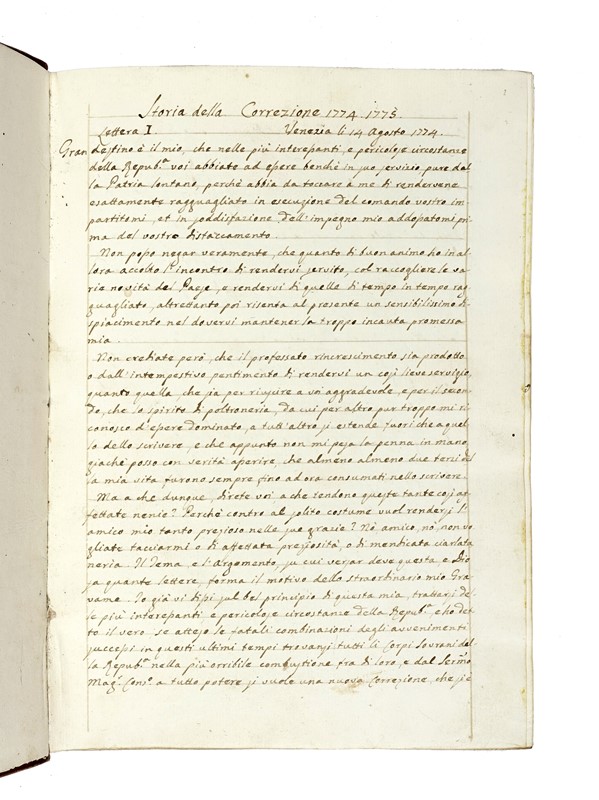 Storia della Correzione 1774. 1775.
Lettera I. Venezia li 14 Agosto 1774.
Gran destino è il mio, che nelle più interessanti, e pericolose circostanze
della Repub.ª voi abbiate ad essere benchè in suo servizio, pure dal
la Patria lontano, perchè abbia da toccare a me di rendervene
esattamente ragguagliato in esecuzione del comando vostro im
partitomi, et in soddisfazione dell'impegno mio addossatomi pri
ma del vostro distaccamento.
Non posso negar veramente, che quanto di buon animo ho in al
lora accolto l'incontro di rendervi servito, col raccogliere le va
rie novità del Paese, e rendervi di quelle di tempo in tempo rag
guagliato, altrettanto poi risenta al presente un sensibilissimo di
spiacimento nel dovervi mantener la troppo incauta promessa
mia.
Non crediate però, che il professato rincrescimento sia prodotto
o dall'intempestivo pentimento di rendervi un così lieve servigio,
quanto quella, che sia per riuscire a voi aggradevole, e per il secon
do, che lo spirito di poltroneria, da cui per altro pur troppo mi ri
conosco d'essere dominato, a tutt'altro si estende fuori che a quel
lo dello scrivere, e che appunto non mi pesa la penna in mano,
giachè posso con verità asserire, che almeno almeno due terzi del
la mia vita furono sempre fino ad ora consumati nello scrivere.
Ma a che dunque, direte voi a che tendono queste tante così af
fettate nenie? Perchè contro al solito costume vuol rendersi l'
amico mio tanto prezioso nelle sue grazie? Nò amico, nò, non vo
gliate tacciarmi o di affettata preziosità, o di mendicata ciarlata
neria. Il Tema, e l'Argomento, su cui versar deve questa, e Dio
sa quante lettere, forma il motivo dello straordinario mio Gra
vame. Io già vi dissi sul bel principio di questa mia, trattarsi del
le più interessanti e pericolose circostanze della Repub.ª, e ho det
to il vero se atteso le fatali combinazioni degli avvenimenti
successi in questi ultimi tempi trovansi tutti li Corpi Sovrani del
la Repub.ª nella più orribile combustione fra di loro, e dal Ser.mo
Mag.r Cons.o a tutto potere si vuole una nuova Correzione, che se